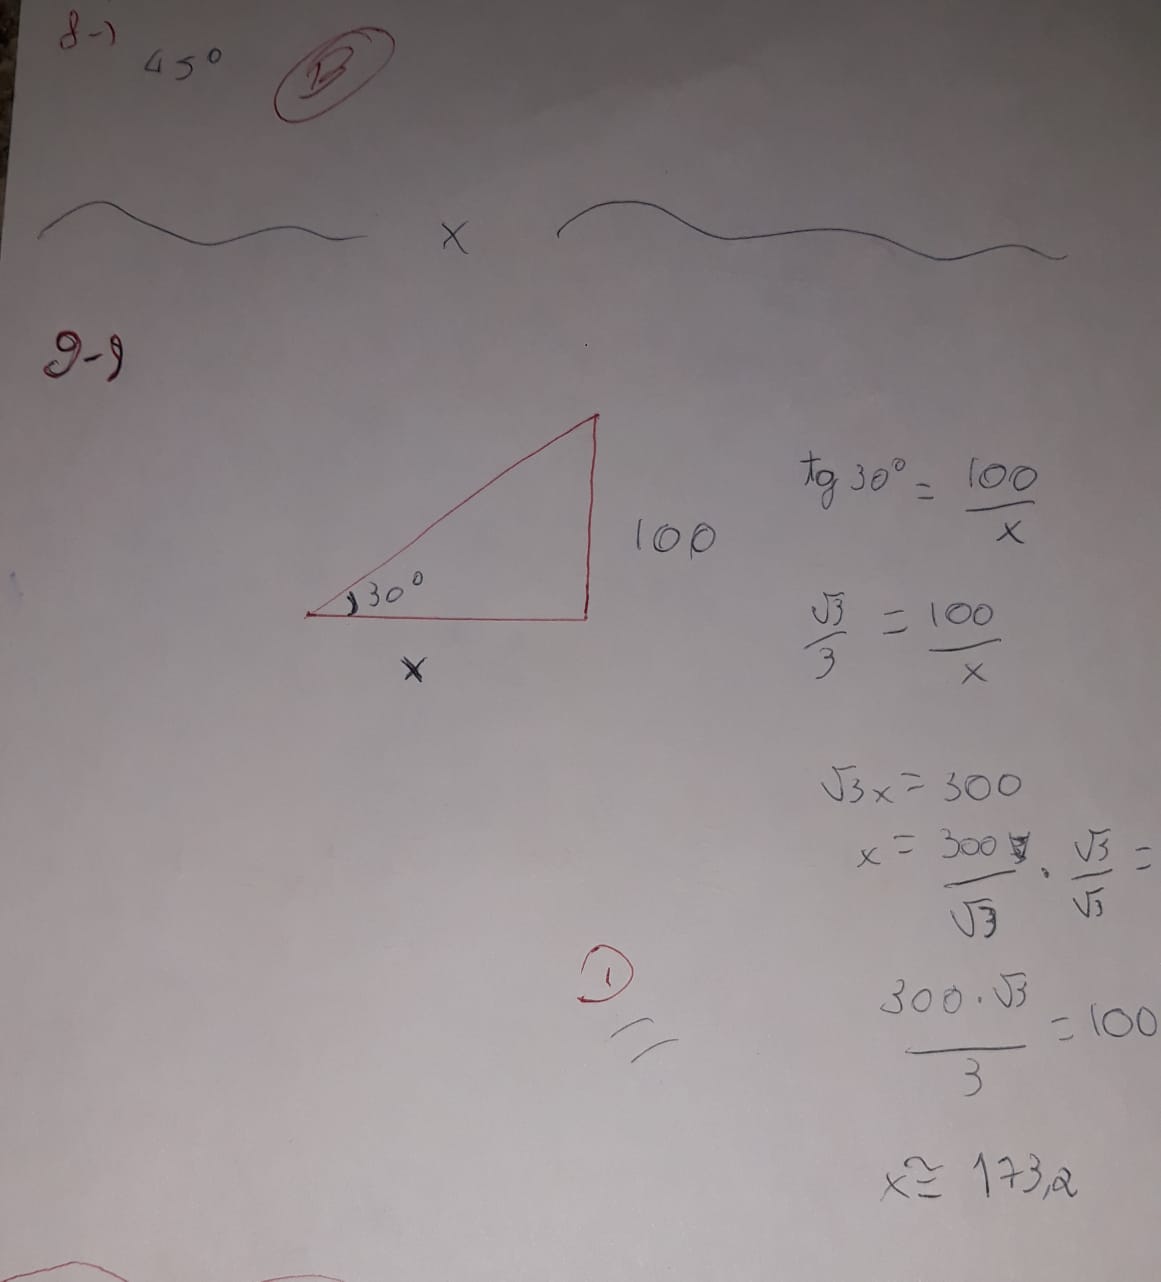 8-)
45° B
x
9-)
tg 30° = 100/x
100
30°
√3/3 = 100/x
x
√3x = 300
x = 300/√3 . √3/√3 =
300.√3/3 = 100
x ≅ 173,2